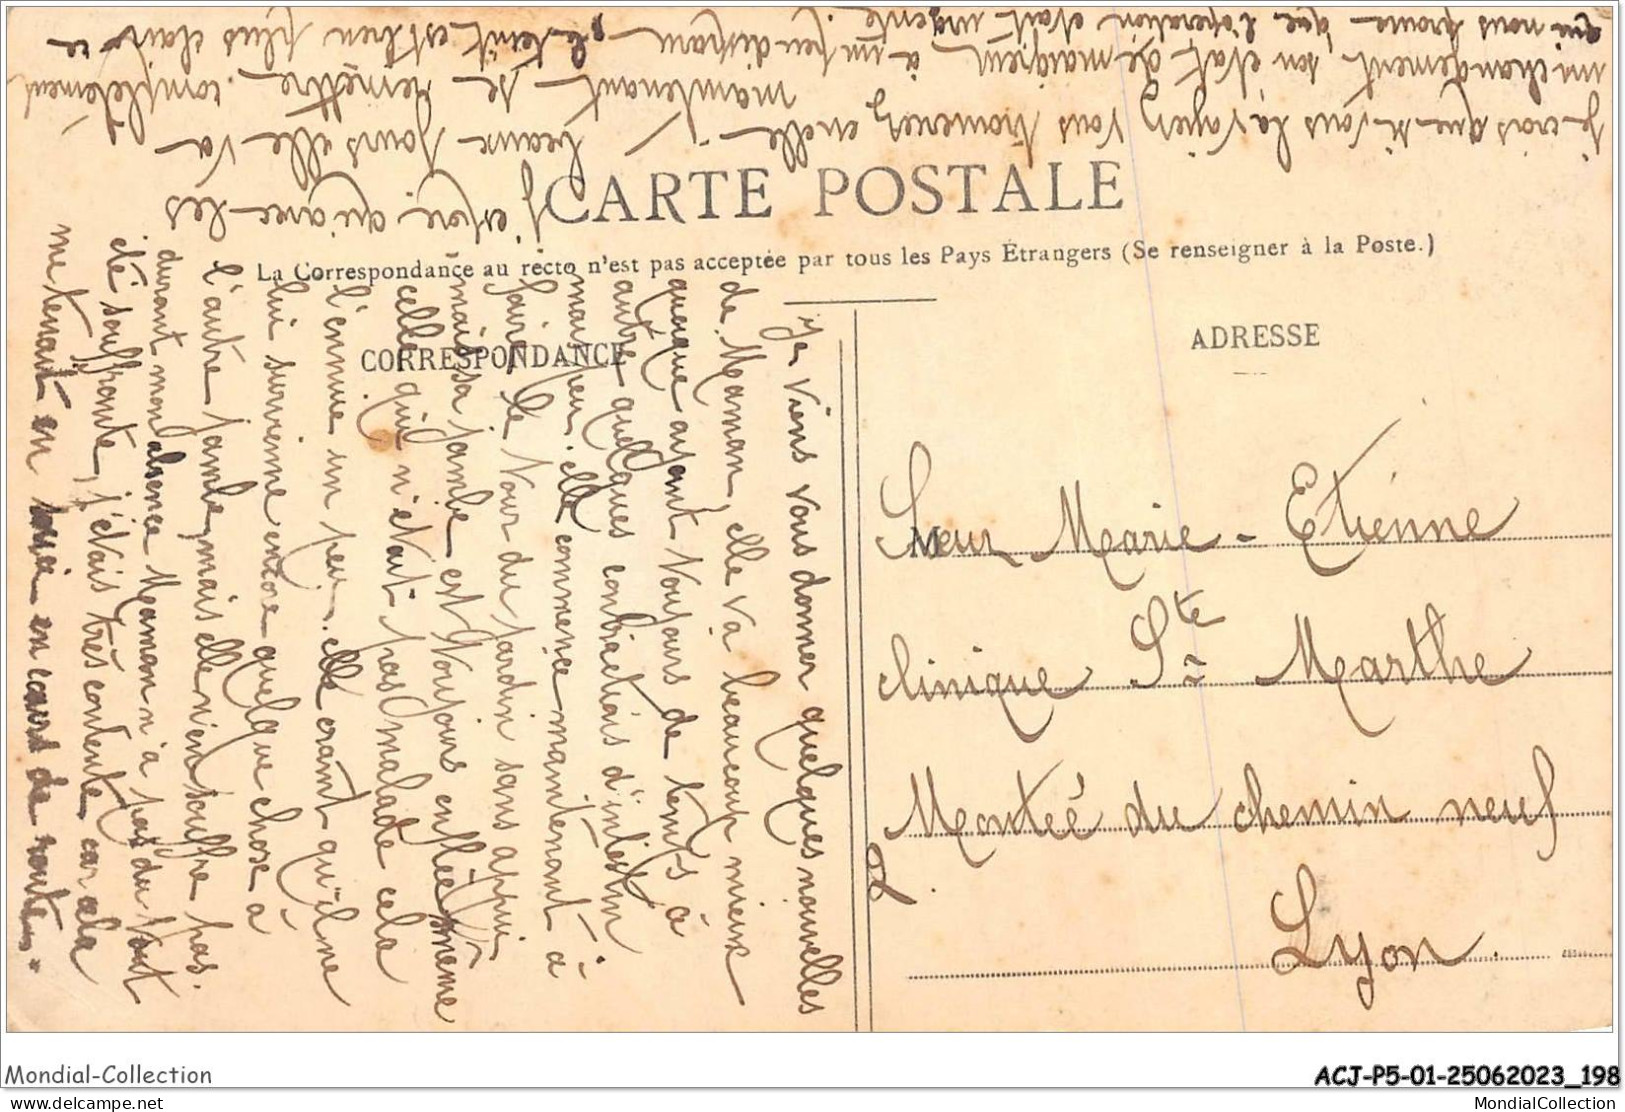 CARTE POSTALE
La Correspondance au recto n'est pas acceptée par tous les Pays Étrangers (Se renseigner à la Poste.)
CORRESPONDANCE
Je viens vous donner quelques nouvelles
de Maman, elle va beaucoup mieux
quoique ayant toujours de temps à
autre quelques contractions d'intestin
marpeu. elle commence maintenant à
faire le tour du jardin sans appui
mais sa jambe est toujours enflée même
celle qui n'était pas malade cela
l'ennuie un peu. elle craint qu'il ne
lui survienne encore quelque chose à
l'autre jambe, mais elle n'en souffre pas.
durant mon absence Maman n'a pas du tout
été souffrante, j'étais très contente car cela
me tenait en souci en cours de route.
je crois que si vous la voyiez vous trouveriez en elle
un changement son état de maigreur a un peu disparu le teint est bien plus clair ce
qui nous prouve que l'opération était urgente.
j'espère qu'avec les
beaux jours elle va
maintenant se remettre complètement
ADRESSE
M
Sœur Marie-Etienne
clinique Ste Marthe
Montée du chemin neuf
2.
Lyon.
Mondial-Collection
ACJ-P5-01-25062023_198
www.delcampe.net
MondialCollection